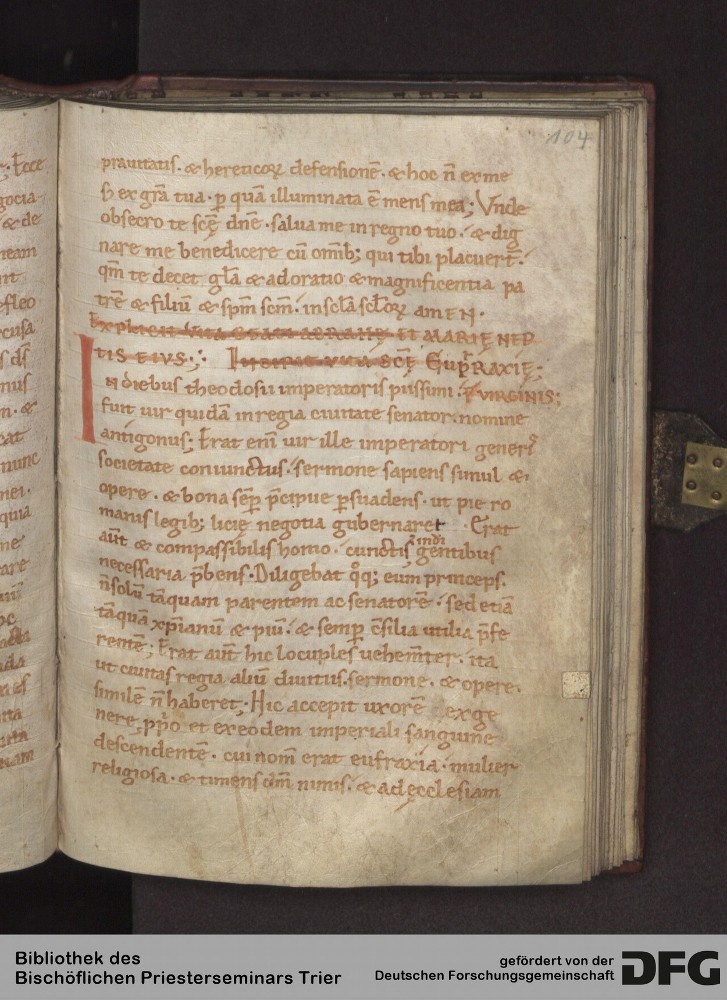 104
prauitatis. & hereticoꝝ defensionē. & hoc n̄ ex me
s; ex gr̄a tua. ꝑ quā illuminata ē mens mea; Vnde
obsecro te scē dn̄e. salua me in regno tuo. & dig
nare me benedicere cū om̄ib; qui tibi placuer̄t.
qm̄ te decet gl̄a & adoratio & magnificentia pa
trē & filiū & sp̄m sc̄m. in scl̄a scl̄oꝝ AMEN.
EXPLICIT VITA ABRAHE ET MARIĘ NEP
TIS EIVS; INCIPIT VITA SCĘ EUPRAXIĘ;
VIRGINIS;
In diebus theodosii imperatoris piissimi.
fuit uir quidā in regia ciuitate senator. nomine
antigonus; Erat eni uir ille imperatori generi
societate coniunctus. sermone sapiens simul &
opere. & bona sēꝑ p̄cipue ꝑsuadens. ut pie ro
manis legib; licie negotia gubernaret. Erat
aūt & compassibilis homo. cunctis indigentibus
necessaria p̄bens. Diligebat q̊q; eum princeps.
n̄ solū tāquam parentem ac senatorē. sed etiā
tāquā xp̄ianū & piū. & semꝑ c̄silia utilia p̄fe
rentē; Erat aūt hic locuples uehem̄ter. ita
ut ciuitas regia aliū diuitiis. sermone. & opere.
similē n̄ haberet; Hic accepit uxorē ex ge
nere ꝓprio et ex eodem imperiali sanguine
descendentē. cui nom̄ erat eufraxia. mulier
religiosa. & timens dm̄ nimis. & ad ęcclesiam
Bibliothek des
Bischöflichen Priesterseminars Trier
gefördert von der
Deutschen Forschungsgemeinschaft
DFG